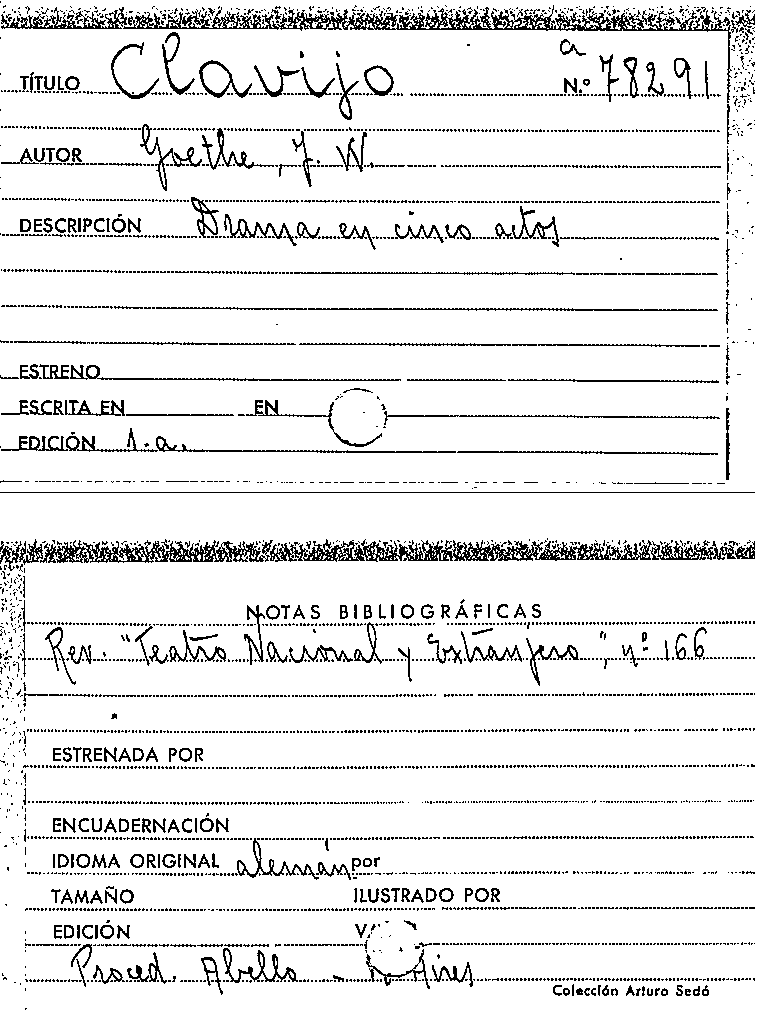 a
TÍTULO Clavijo N.º 78291
AUTOR Goethe, J. W.
DESCRIPCIÓN Drama en cinco actos
ESTRENO
ESCRITA EN EN
EDICIÓN s.a.
NOTAS BIBLIOGRÁFICAS
Rev. "Teatro Nacional y Extranjero", nº 166
ESTRENADA POR
ENCUADERNACIÓN
IDIOMA ORIGINAL alemán por
TAMAÑO ILUSTRADO POR
EDICIÓN
Proced. Abello - Aires
Colección Arturo Sedó